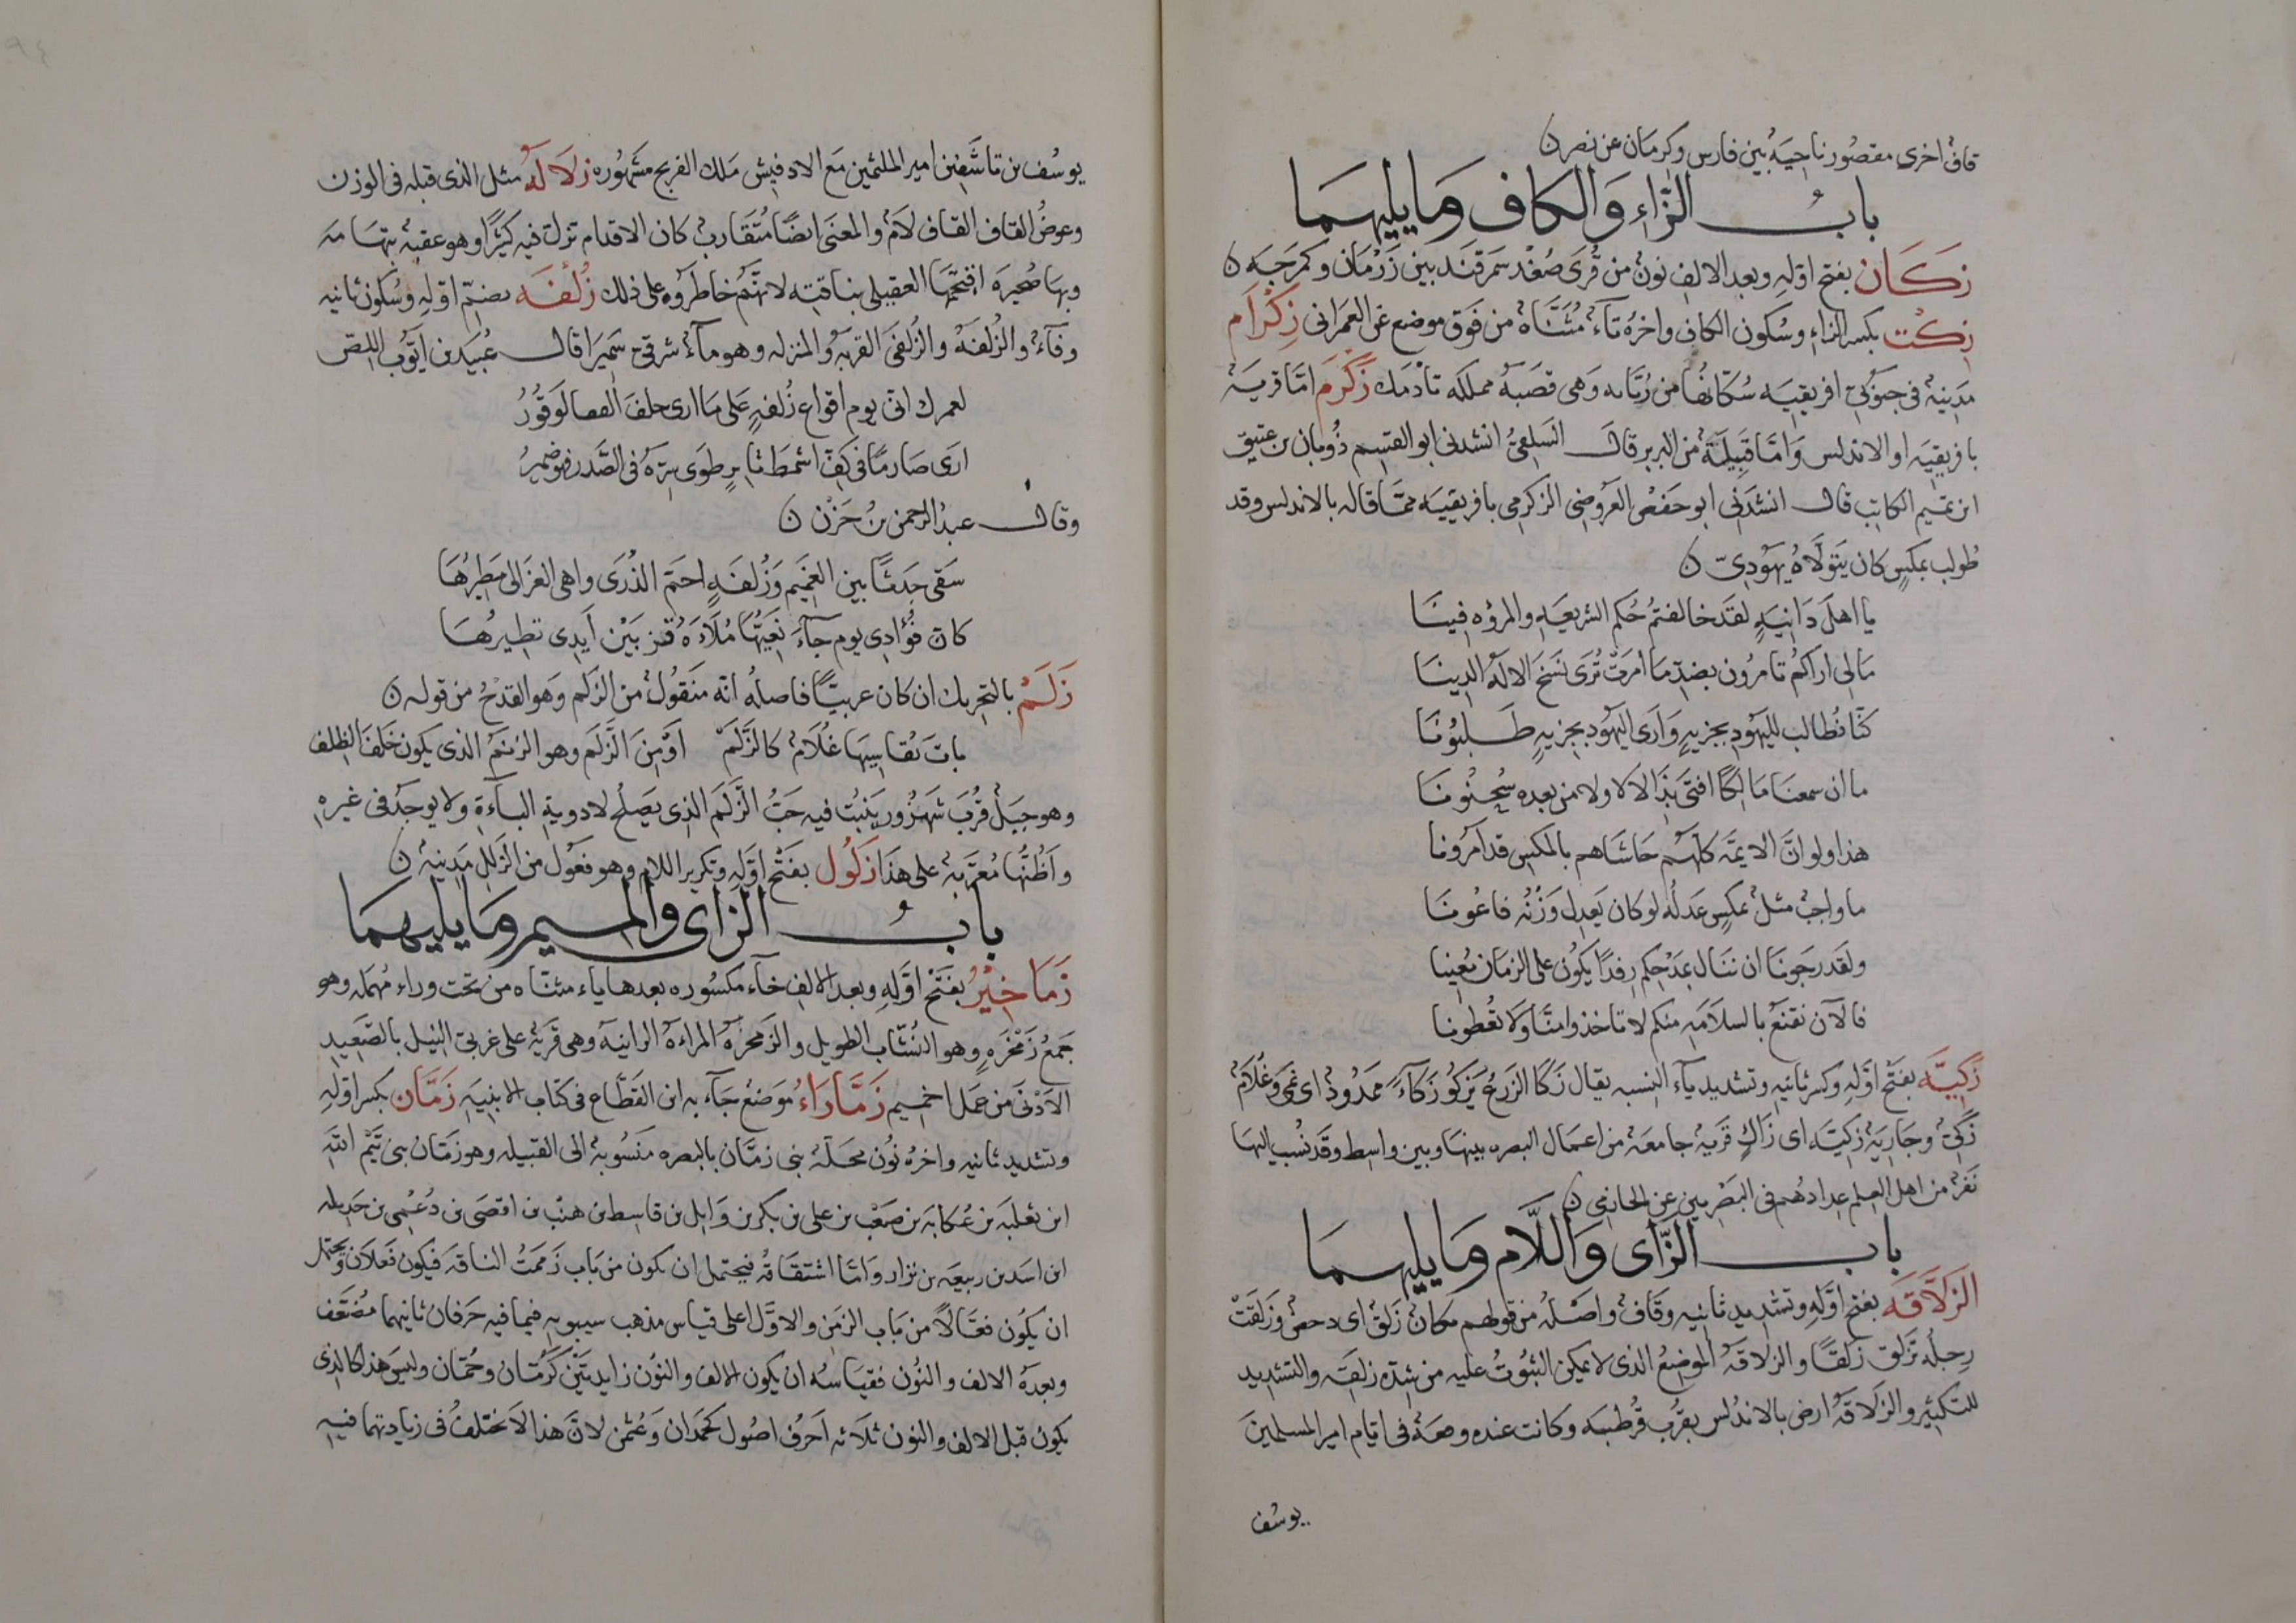 قاف اخرى مقصور ناحية بين فارس وكرمان عن نصر ن
باب الزاء والكاف وما يليهما
زكان بفتح اوله وبعد الالف نون من قرى صغد سمرقند بين زرمان وكمرجه ن
زكت بكسر الزاء وسكون الكاف واخره تاء مثناة من فوق موضع عن العمرانى زكرام
مدينة فى جنوبى افريقيه سكانها من زناته وهى قصبة مملكه تادمك زكرم اما قرية
بافريقيه او الاندلس واما قبيلة من البربر قال السلفى انشدنى ابو القسم ذوبان بن عتيق
ابن تميم الكاتب قال انشدنى ابو حفص العروضى الزكرمى بافريقيه مما قاله بالاندلس وقد
طولب بمكس كان يتولاه يهودى ن
يا اهل دانية لقد خالفتم حكم الشريعه والمروه فينا
مالى اراكم تامرون بضد ما امرت ترى نسخ الاله الدينا
كنا نطالب لليهود بجزيه وارى اليهود بجزيه طلبونا
ما ان سمعنا مالكا افتى بذا لا لا ولا من بعده سحنونا
هذا ولو ان الايمه كلهم حاشاهم بالمكس قد امرونا
ما واجب مثلى بمكس عدله لو كان يعدل وزنه فاعونا
ولقد رجونا ان ننال بعدلكم رفدا يكون على الزمان معينا
فالآن نقنع بالسلامه منكم لا تاخذوا منا ولا تعطونا
زكيه بفتح اوله وكسر ثانيه وتشديد ياء النسبه يقال زكا الزرع يزكو زكاء ممدود اى نمى وغلام
زكى وجارية زكيه اى زاك قرية جامعة من اعمال البصره بينها وبين واسط وقد نسب اليها
نفر من اهل العلم عدادهم فى البصريين عن الحازمى ن
باب الزاى واللام وما يليهما
الزلاقه بفتح اوله وتشديد ثانيه وقاف واصله من قولهم مكان زلق اى دحض وزلقت
رجله تزلق زلقا والزلاقة الموضع الذى لا يمكن الثبوت عليه من شدة زلقه والتشديد
للتكثير والزلاقة ارض بالاندلس بقرب قرطبه وكانت عنده وقعة فى ايام امير المسلمين
يوسف
يوسف بن تاشفين امير الملثمين مع الادفيش ملك الفرنج مشهوره زلاله مثل الذى قبله فى الوزن
وعوض القاف القاف لام والمعنى ايضا متقارب كان الاقدام تزل فيه كثيرا وهو عقبة بتهامه
وبها صخيرة اقتحمها العقيلى بناقته لانهم خاطروه على ذلك زلفه بضم اوله وسكون ثانيه
وفاء والزلفة والزلفى القربة والمنزله وهو ماء شرقى سميرا قال عبيد بن ايوب اللص
لعمرك انى يوم اقواع زلفة على ما ارى خلف القفا لوقور
ارى صارما فى كف اشمط ثاير طوى سره فى الصدر فهو ضمير
وقال عبد الرحمن بن حزن ن
سقى جدثا بين الغميم وزلفة احم الذرى واهى العزالى مطيرها
كان فؤادى يوم جاء نعيها ملاءة قز بين أيدى تطيرها
زلم بالتحريك ان كان عربيا فاصله انه منقول من الزلم وهو القدح من قوله ن
بات يقاسيها غلام كالزلم او من الزلم وهو الزنم الذى يكون خلف الظلف
وهو جبل قرب شهرزور ينبت فيه حب الزلم الذى يصلح لادوية الباءة ولا يوجد فى غيره
واظنها معربة على هذا زلول بفتح اوله وتكرير اللام وهو فعول من الزلل مدينة ن
باب الزاى والميم وما يليهما
زماخير بفتح اوله وبعد الالف خاء مكسوره بعدها ياء مثناه من تحت وراء مهمله وهو
جمع زمخره وهو النشاب الطويل والزمخرة المراءة الزانيه وهى قرية على غربى النيل بالصعيد
الادنى من عمل اخميم زماراء موضع جاء به ابن القطاع فى كتاب الابنيه زمان بكسر اوله
وتشديد ثانيه واخره نون محلة بنى زمان بالبصره منسوبة الى القبيله وهو زمان بن تيم الله
ابن ثعلبه بن عكابه بن صعب بن على بن بكر بن وايل بن قاسط بن هنب بن اقصى بن دعمى بن جديله
ابن اسد بن ربيعه بن نزار واما اشتقاقه فيحتمل ان يكون من باب زممت الناقه فيكون فعلان ويحتمل
ان يكون فعالا من باب الزمن والاول اعلى قياس مذهب سيبويه فيما فيه حرفان ثانيهما مضعف
وبعده الالف والنون فقياسه ان يكون الالف والنون زايدتين كرمان وحمان وليس هذا كالذى
يكون قبل الالف والنون ثلاثه احرف اصول كحمدان وعثمن لان هذا لا نختلف فى زيادتهما فيه